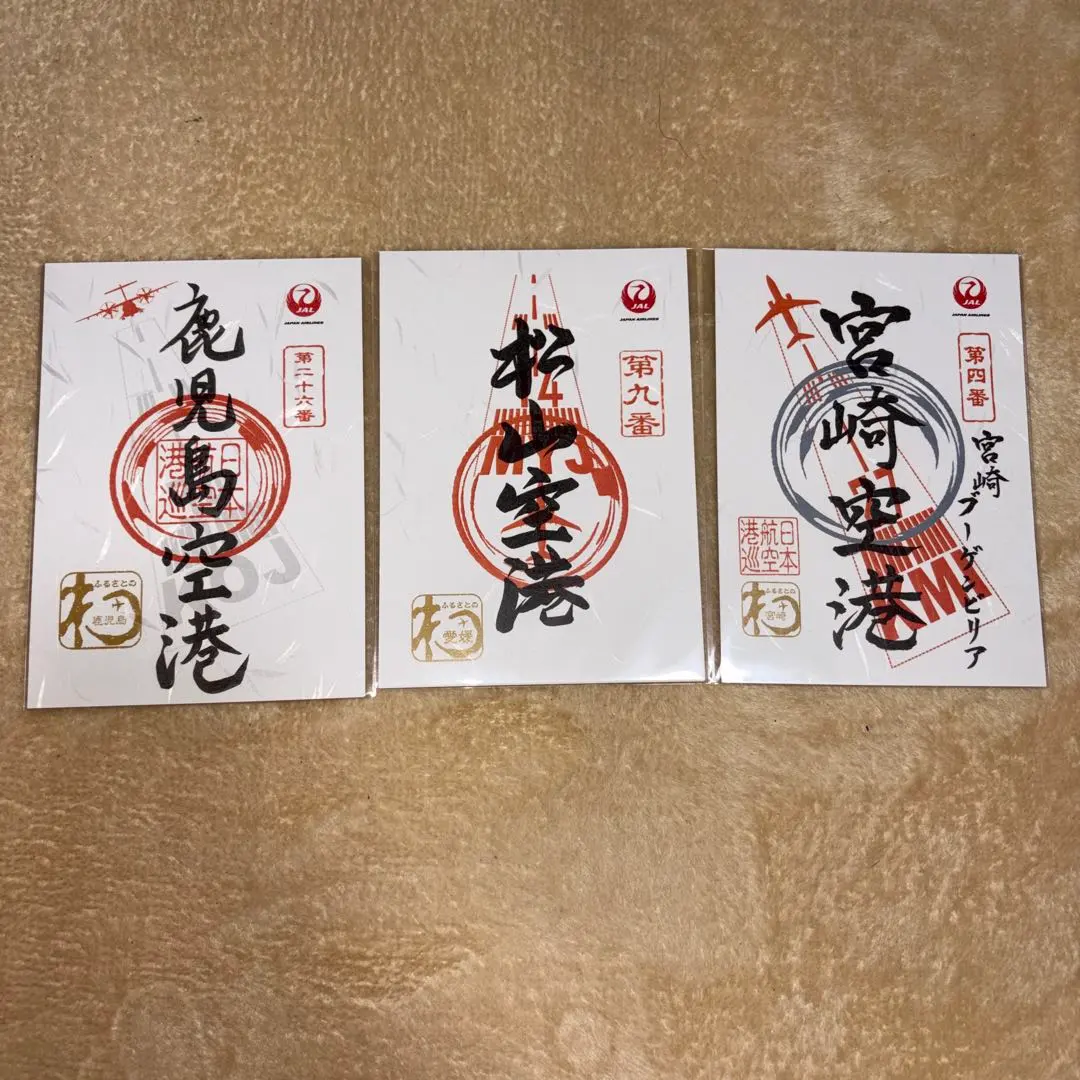 鹿児島空港
JAL
JAPAN AIRLINES
第二十六番
日本
航空
港巡
KOJ
ふるさとの
鹿児島
松山空港
JAL
JAPAN AIRLINES
第九番
14
MYJ
ふるさとの
愛媛
宮崎空港
JAL
JAPAN AIRLINES
第四番
宮崎
ブーゲンビリア
日本
航空
港巡
ふるさとの
宮崎